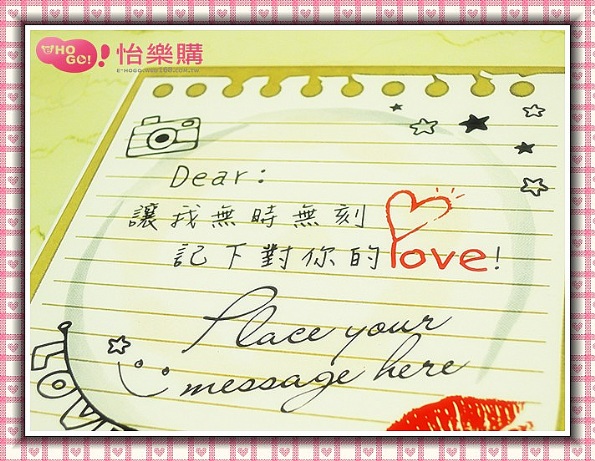 HOGO! 怡樂購
Dear:
讓我無時無刻
記下對你的love!
Place your
message here
LOVE